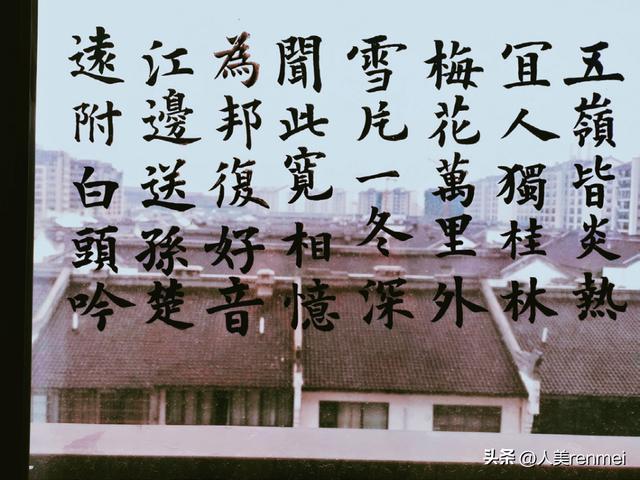 五嶺皆炎熱
宜人獨桂林
梅花萬里外
雪片一冬深
聞此寬相憶
為邦復好音
江邊送孫楚
遠附白頭吟
头条 @人美renmei